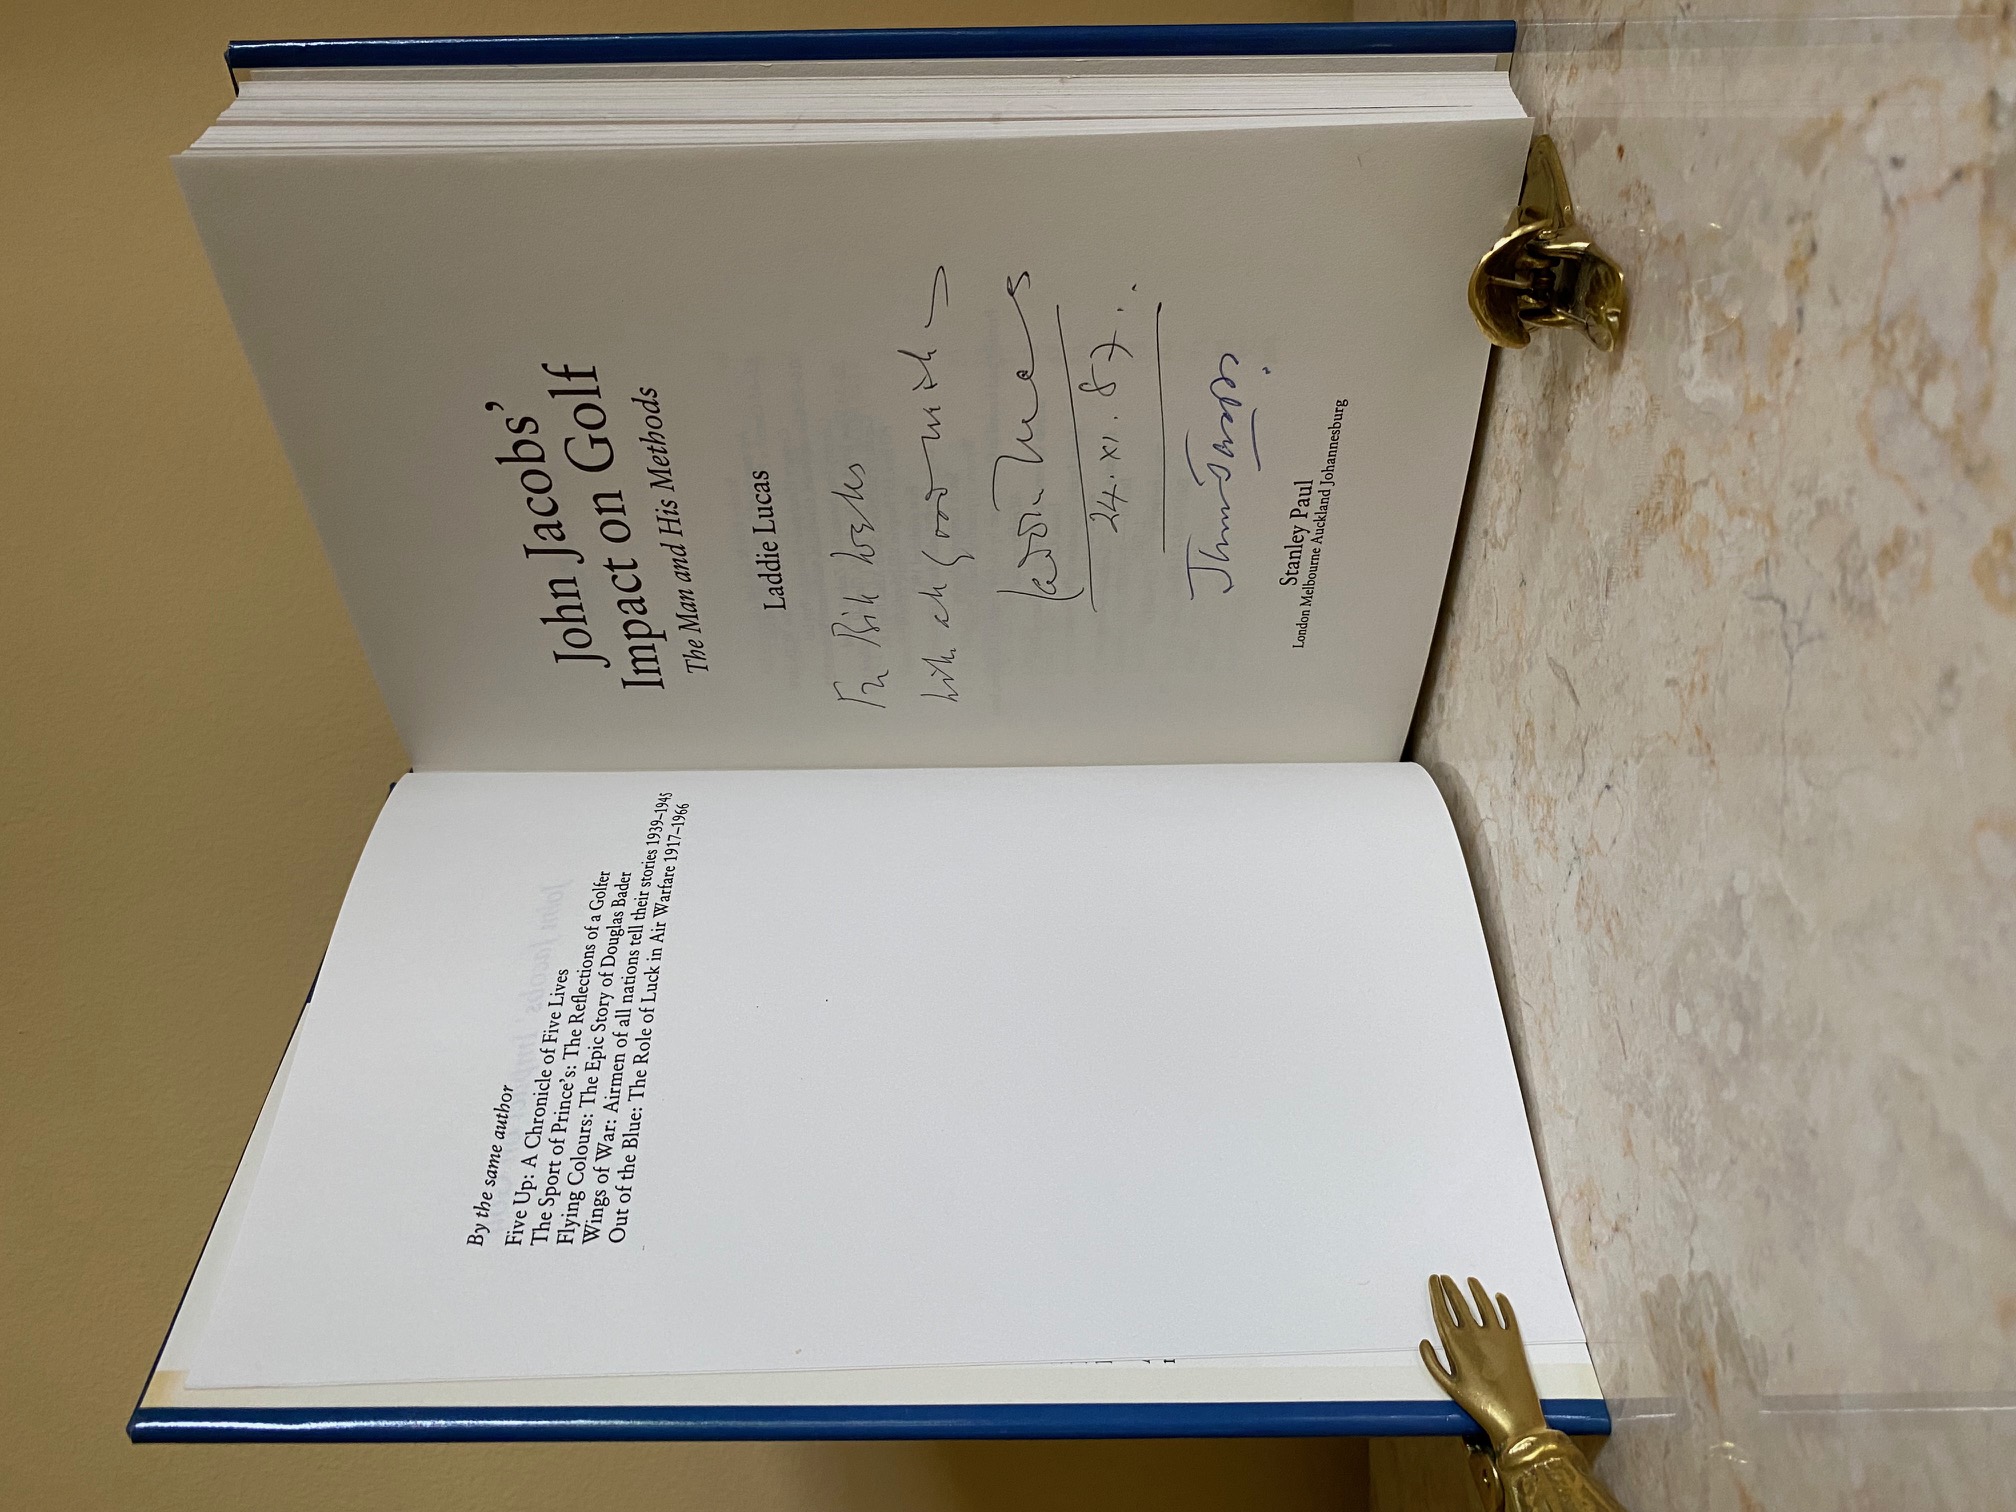 By the same author
Five Up: A Chronicle of Five Lives
The Sport of Prince's: The Reflections of a Golfer
Flying Colours: The Epic Story of Douglas Bader
Wings of War: Airmen of all nations tell their stories 1939–1945
Out of the Blue: The Role of Luck in Air Warfare 1917–1966
John Jacobs'
Impact on Golf
The Man and His Methods
Laddie Lucas
with all good wishes
Laddie Lucas
24.XI.87.
John Jacobs.
Stanley Paul
London Melbourne Auckland Johannesburg